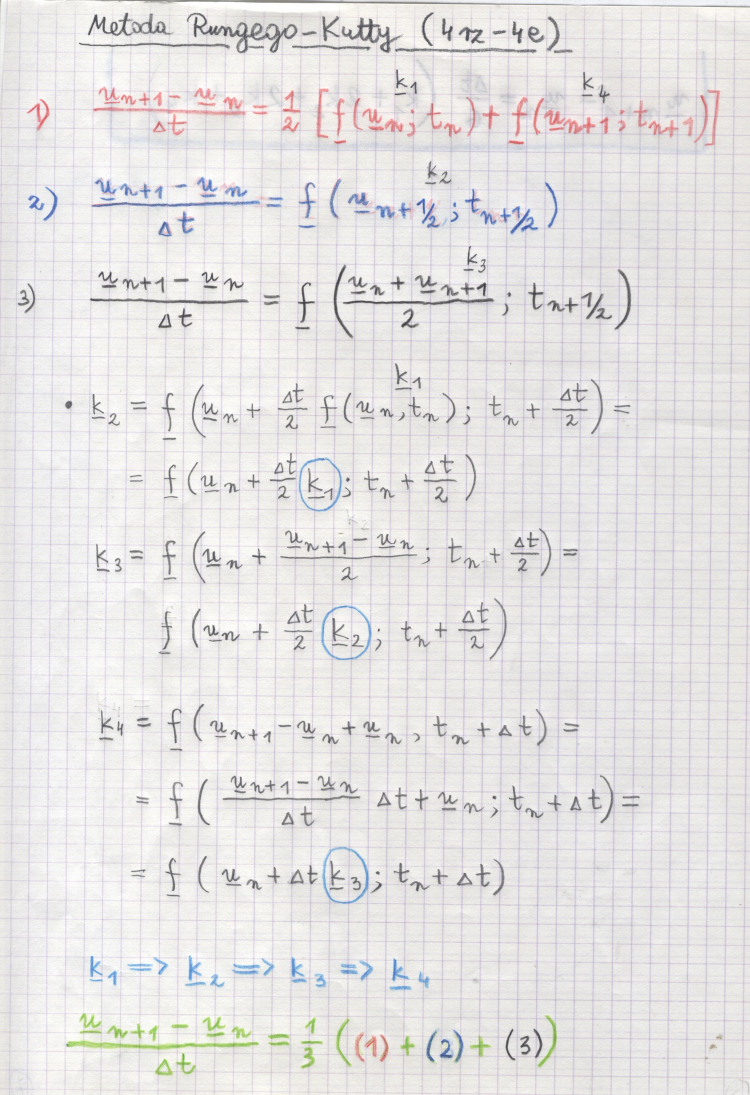 Metoda Rungego-Kutty (4rz-4e)
k₁ k₄
1) (u_{n+1} - u_n)/Δt = 1/2 [f(u_n; t_n) + f(u_{n+1}; t_{n+1})]
k₂
2) (u_{n+1} - u_n)/Δt = f(u_{n+1/2}; t_{n+1/2})
k₃
3) (u_{n+1} - u_n)/Δt = f((u_n + u_{n+1})/2; t_{n+1/2})
k₁
• k₂ = f(u_n + Δt/2 f(u_n, t_n); t_n + Δt/2) =
= f(u_n + Δt/2 k₁; t_n + Δt/2)
k₃ = f(u_n + (u_{n+1} - u_n)/2; t_n + Δt/2) =
f(u_n + Δt/2 k₂; t_n + Δt/2)
k₄ = f(u_{n+1} - u_n + u_n, t_n + Δt) =
= f((u_{n+1} - u_n)/Δt Δt + u_n; t_n + Δt) =
= f(u_n + Δt k₃; t_n + Δt)
k₁ => k₂ => k₃ => k₄
(u_{n+1} - u_n)/Δt = 1/3 ((1) + (2) + (3))